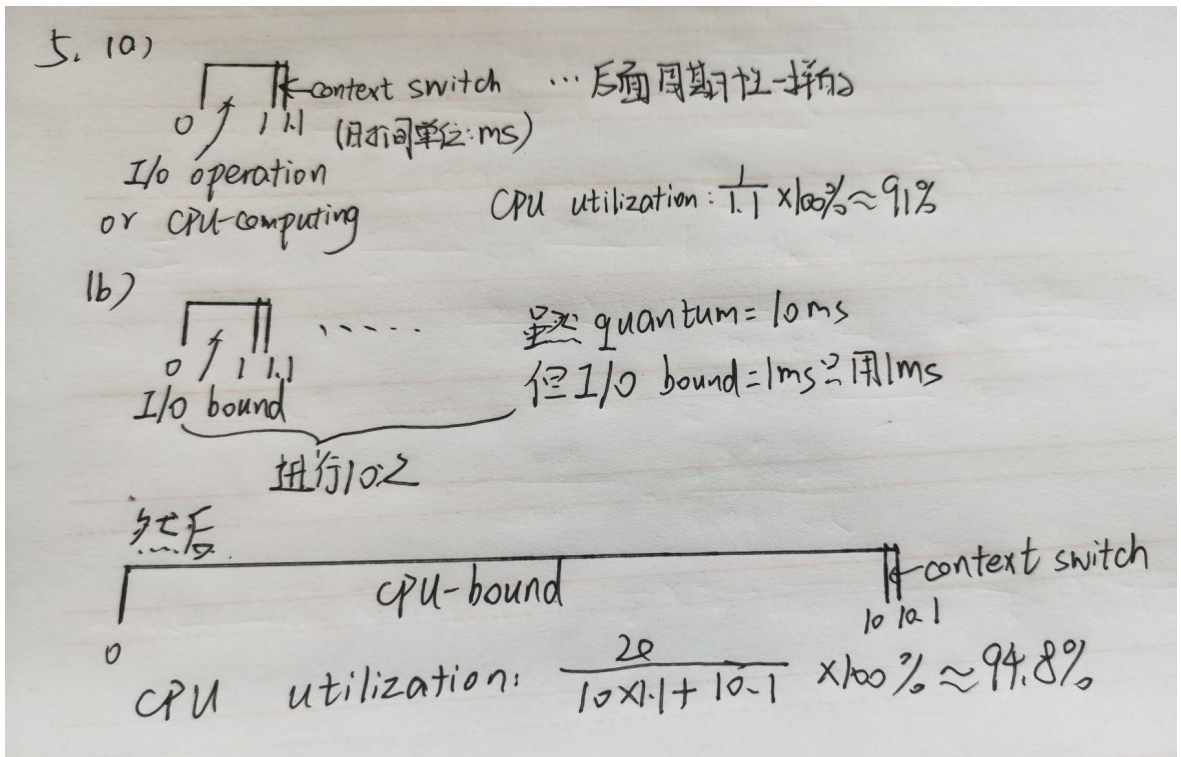 5. (a)
context switch …后面周期性一样的
0 1 1.1 (时间单位:ms)
I/O operation
or CPU-computing
CPU utilization: 1/1.1 ×100% ≈ 91%
(b)
…… 虽然 quantum = 10ms
0 1 1.1 但I/O bound = 1ms只用1ms
I/O bound
进行10次
然后
CPU-bound context switch
0 10 10.1
CPU utilization: 20/(10×1.1+10.1) ×100% ≈ 94.8%